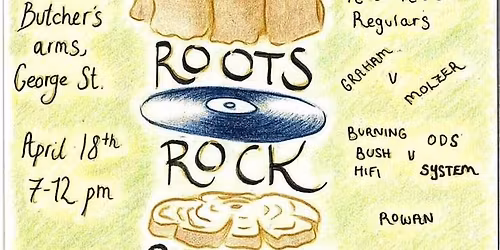 Butcher's
arms,
George St.
April 18th
7-12 pm
ROOTS
ROCK
Regulars
GRAHAM
v
MOLZER
BURNING
BUSH
HIFI
v
ODS
SYSTEM
ROWAN